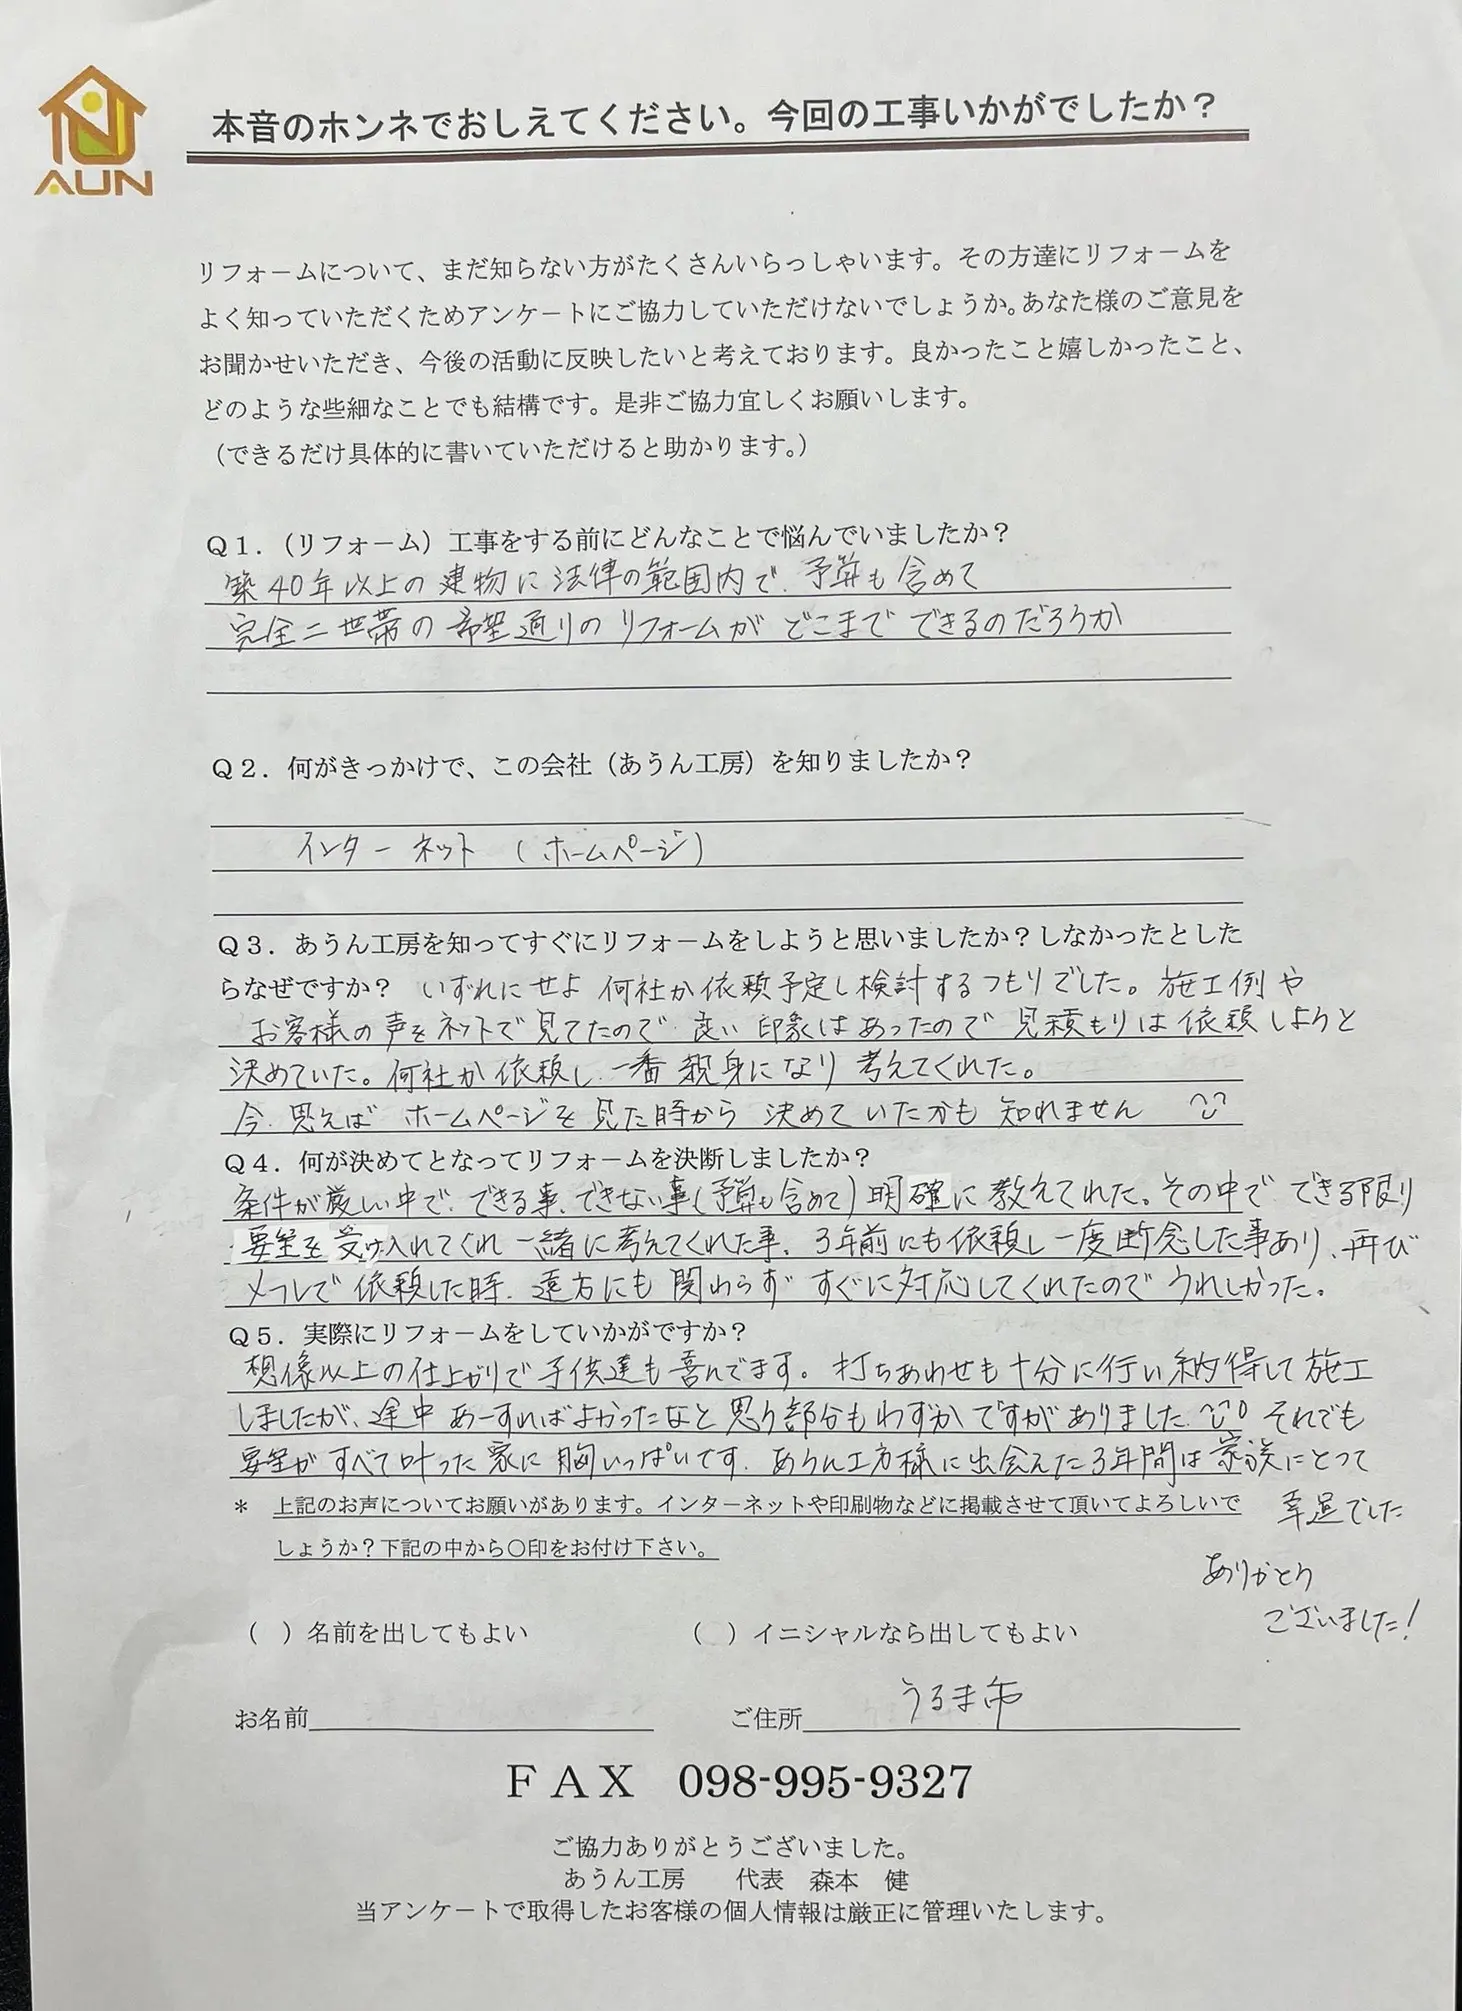 AUN
本音のホンネでおしえてください。今回の工事いかがでしたか？
リフォームについて、まだ知らない方がたくさんいらっしゃいます。その方達にリフォームを
よく知っていただくためアンケートにご協力していただけないでしょうか。あなた様のご意見を
お聞かせいただき、今後の活動に反映したいと考えております。良かったこと嬉しかったこと、
どのような些細なことでも結構です。是非ご協力宜しくお願いします。
（できるだけ具体的に書いていただけると助かります。）
Ｑ１．（リフォーム）工事をする前にどんなことで悩んでいましたか？
築40年以上の建物に法律の範囲内で、予算も含めて
完全二世帯の希望通りのリフォームがどこまでできるのだろうか
Ｑ２．何がきっかけで、この会社（あうん工房）を知りましたか？
インターネット（ホームページ）
Ｑ３．あうん工房を知ってすぐにリフォームをしようと思いましたか？しなかったとした
らなぜですか？ いずれにせよ 何社か依頼予定し検討するつもりでした。施工例や
お客様の声をネットで見てたので、良い印象はあったので見積もりは依頼しようと
決めていた。何社か依頼し、一番親身になり考えてくれた。
今、思えばホームページを見た時から決めていたかも知れません
Ｑ４．何が決めてとなってリフォームを決断しましたか？
条件が厳しい中で、できる事、できない事（予算も含めて）明確に教えてれた。その中でできる限り
要望を受け入れてくれ一緒に考えてくれた事、3年前にも依頼し一度断念した事あり、再び
メールで依頼した時、遠方にも関わらずすぐに対応してくれたのでうれしかった。
Ｑ５．実際にリフォームをしていかがですか？
想像以上の仕上がりで子供達も喜んでます。打ちあわせも十分に行い納得して施工
しましたが、途中あーすればよかったなと思う部分もわずかですがありました それでも
要望がすべて叶った家に胸いっぱいです。あうん工房様に出会えた3年間は家族にとって
幸運でした
＊ 上記のお声についてお願いがあります。インターネットや印刷物などに掲載させて頂いてよろしいで
しょうか？下記の中から〇印をお付け下さい。
ありがとう
ございました！
（ ）名前を出してもよい （ ）イニシャルなら出してもよい
お名前 ご住所 うるま市
ＦＡＸ 098-995-9327
ご協力ありがとうございました。
あうん工房 代表 森本 健
当アンケートで取得したお客様の個人情報は厳正に管理いたします。